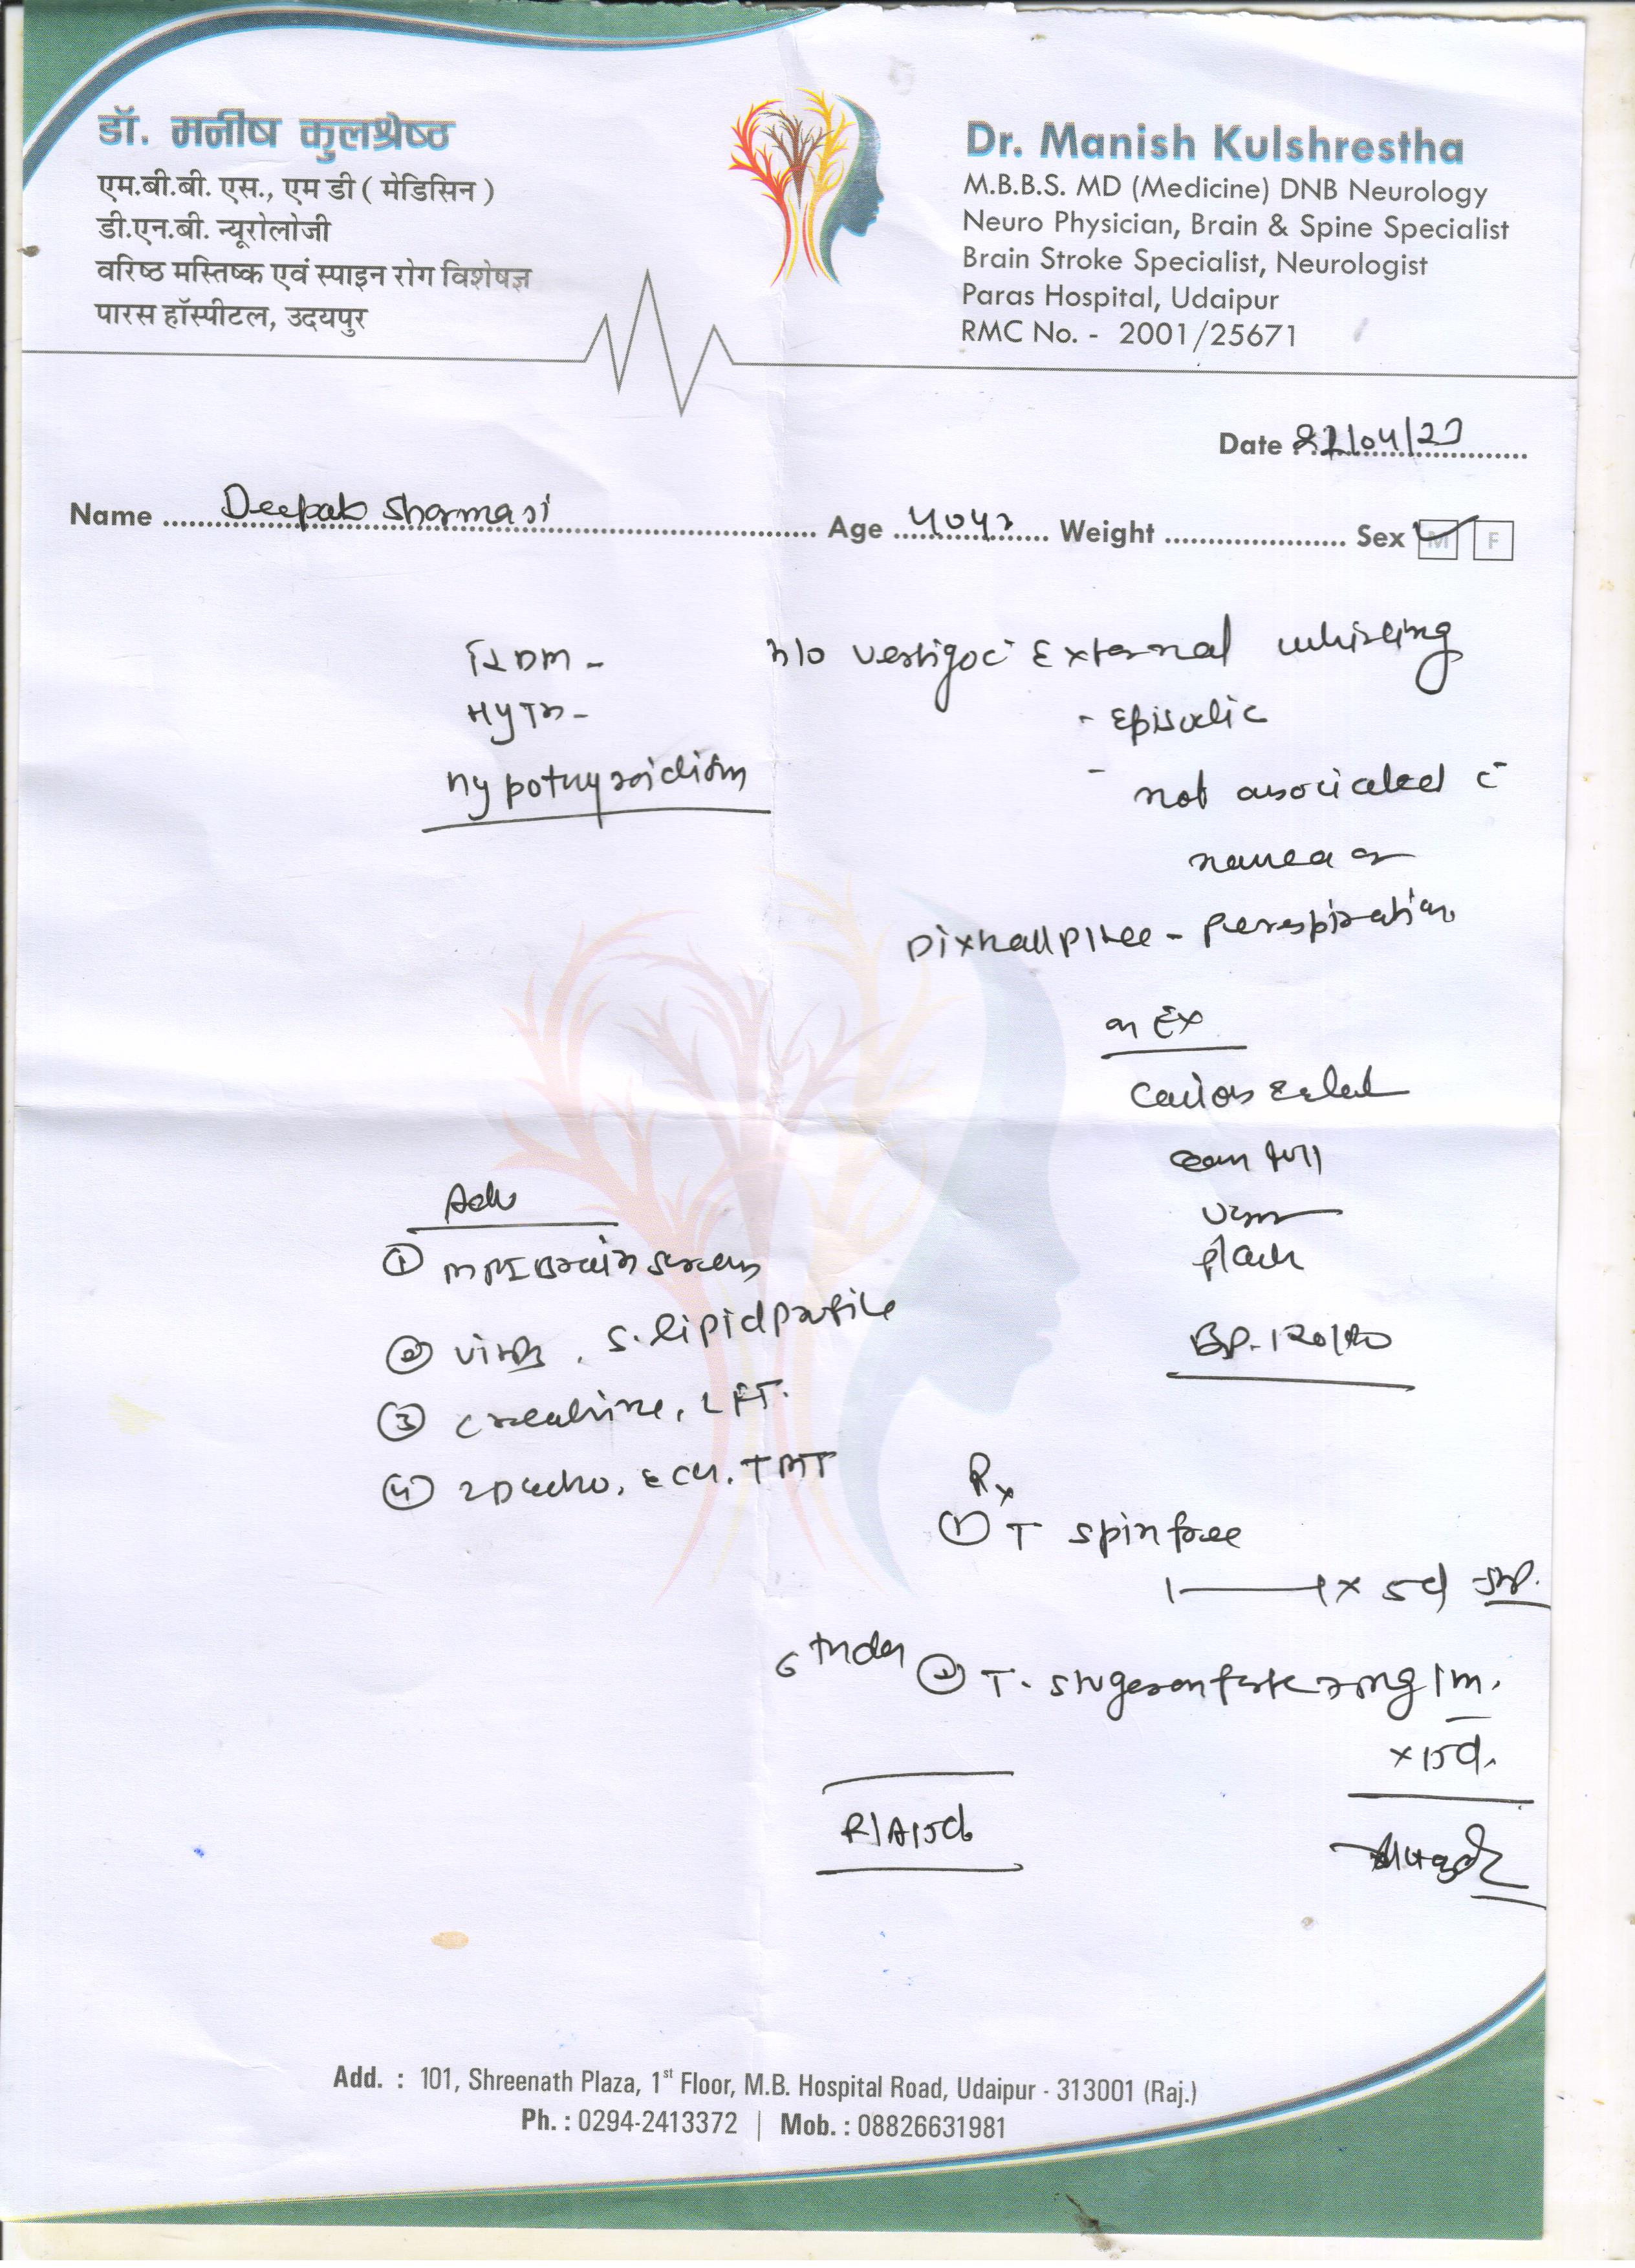 डॉ. मनीष कुलश्रेष्ठ
एम.बी.बी. एस., एम डी ( मेडिसिन )
डी.एन.बी. न्यूरोलोजी
वरिष्ठ मस्तिष्क एवं स्पाइन रोग विशेषज्ञ
पारस हॉस्पीटल, उदयपुर
Dr. Manish Kulshrestha
M.B.B.S. MD (Medicine) DNB Neurology
Neuro Physician, Brain & Spine Specialist
Brain Stroke Specialist, Neurologist
Paras Hospital, Udaipur
RMC No. - 2001/25671
Date /04/23
Name Deepak Sharma Ji Age 40yr Weight Sex M F
T2DM -
HyTn -
Hypothyroidism
h/o vertigo c External whirling
- Episodic
- not associated c
nausea or
Dixhallpikee - Perespiration
on Ex
full
BP. 120/80
Adv
① MRI Brain screen
② S. lipid profile
③ creatinine, LFT.
④ 2D echo, ECG, TMT
Rx
① T spinfree
1 — 1 x 5d
6th day ② T. stugeron forte 1m.
x 15d.
R/A 15d
Add. : 101, Shreenath Plaza, 1st Floor, M.B. Hospital Road, Udaipur - 313001 (Raj.)
Ph. : 0294-2413372 | Mob. : 08826631981